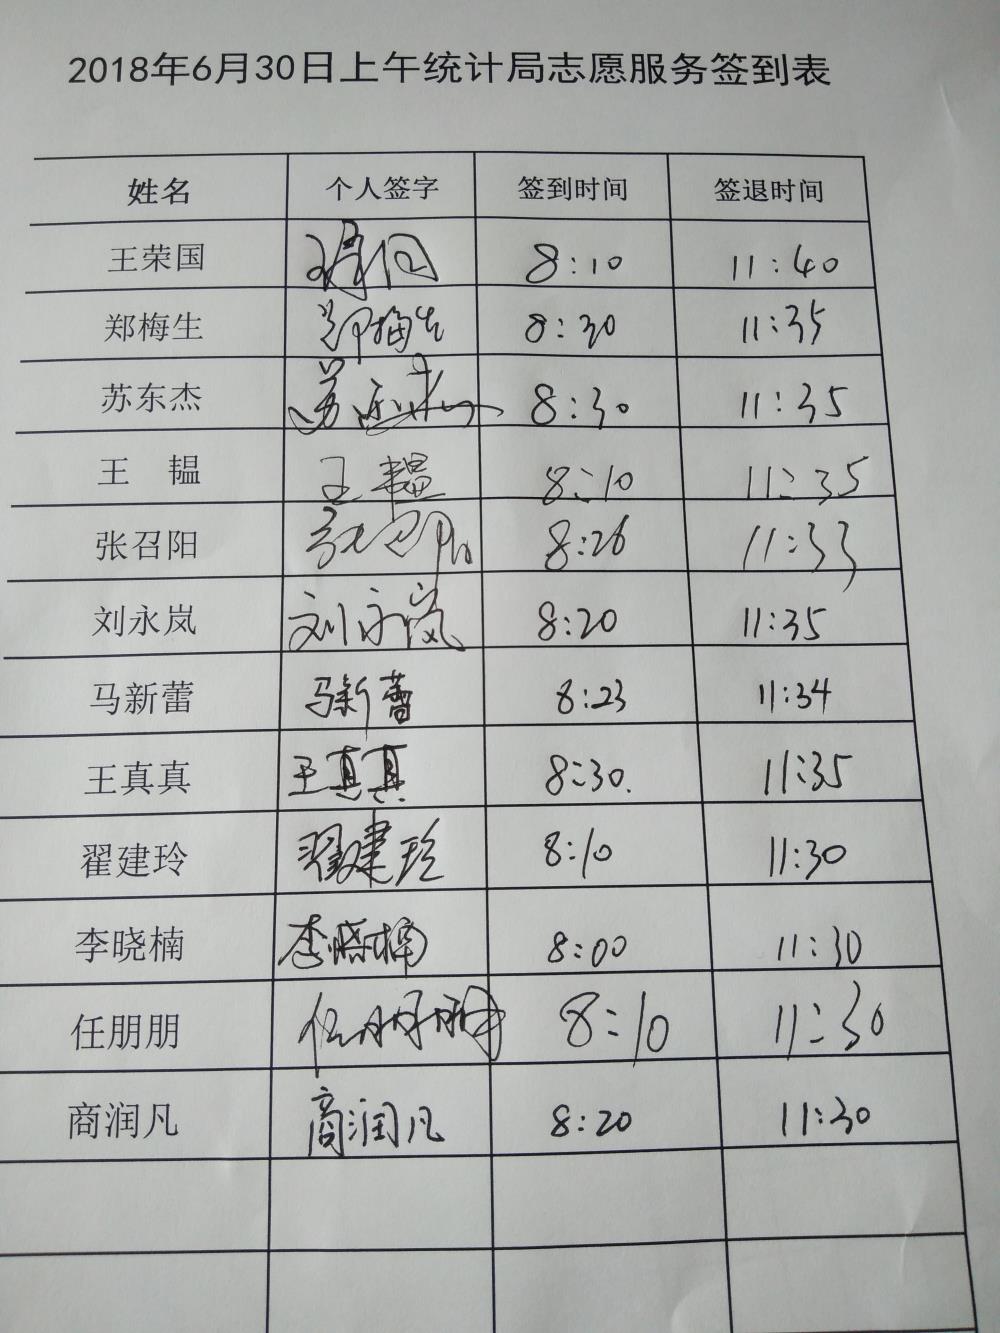 2018年6月30日上午统计局志愿服务签到表
姓名 个人签字 签到时间 签退时间
王荣国 王荣国 8:10 11:40
郑梅生 郑梅生 8:30 11:35
苏东杰 苏东杰 8:30 11:35
王 韫 王韫 8:10 11:35
张召阳 张召阳 8:26 11:33
刘永岚 刘永岚 8:20 11:35
马新蕾 马新蕾 8:23 11:34
王真真 王真真 8:30. 11:35
翟建玲 翟建玲 8:10 11:30
李晓楠 李晓楠 8:00 11:30
任朋朋 任朋朋 8:10 11:30
商润凡 商润凡 8:20 11:30